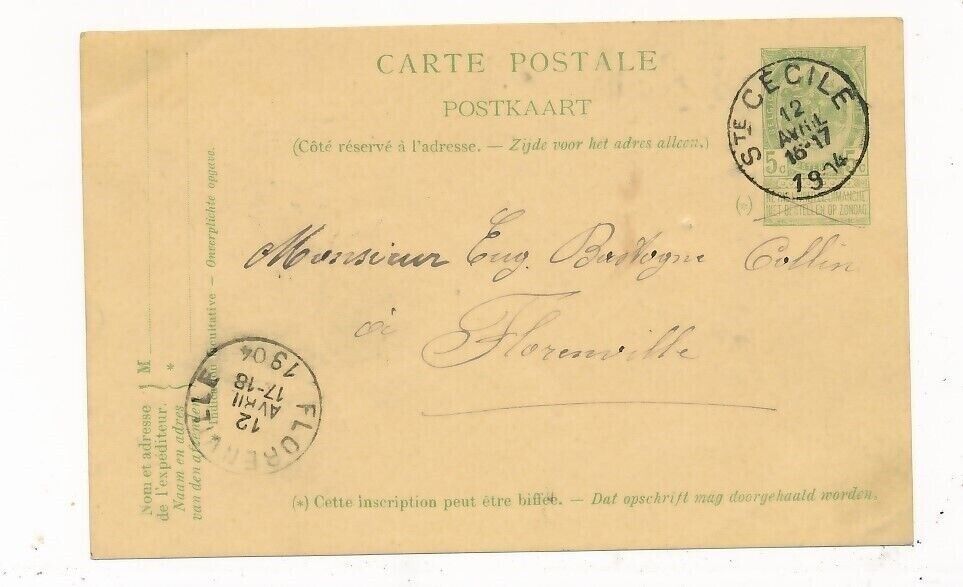 CARTE POSTALE
POSTKAART
(Côté réservé à l'adresse. — Zijde voor het adres alleen.)
STE CÉCILE
12
AVRIL
16-17
1904
5c 5c
DIMANCHE
NIET BESTELLEN OP ZONDAG
(*)
Monsieur Eug. Bastogne Collin
à
Florenville
FLORENVILLE
12
AVRIL
17-18
1904
Nom et adresse
de l'expéditeur.
Naam en adres
van den afzender
} M
*
* Indication facultative - Onverplichte opgave.
(*) Cette inscription peut être biffée. — Dat opschrift mag doorgehaald worden.